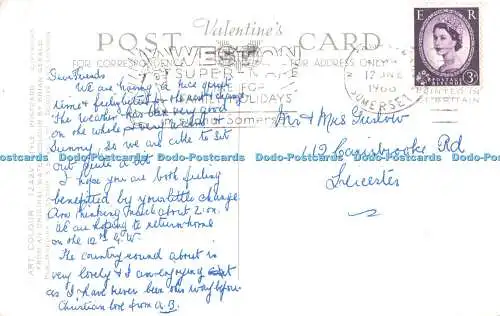 Valentine's
POST CARD
FOR CORRESPONDENCE
FOR ADDRESS ONLY
WESTON
SUPER-MARE
FOR
HOLIDAYS
Somerset
17 JNE
1960
SOMERSET
E R
POSTAGE REVENUE
3D
PRINTED IN
BRITAIN
Dear Friends
We are having a nice quiet
time & feeling better for the rest & change.
The weather has been very good
on the whole &
Sunny, so we are able to sit
out quite a bit.
I hope you are both feeling
benefited by your little change
Am thinking much about Zion.
We are hoping to return home
on the 10th G.W.
The country round about is
very lovely & I am enjoying it
as I have never been this way before.
Christian love from A.B.
Mr & Mrs Gurlow
119 Carisbrooke Rd
Leicester
Dodo-Postcards Dodo-Postcards Dodo-Postcards Dodo-Postcards Dodo-Postcards Dodo-Postcards